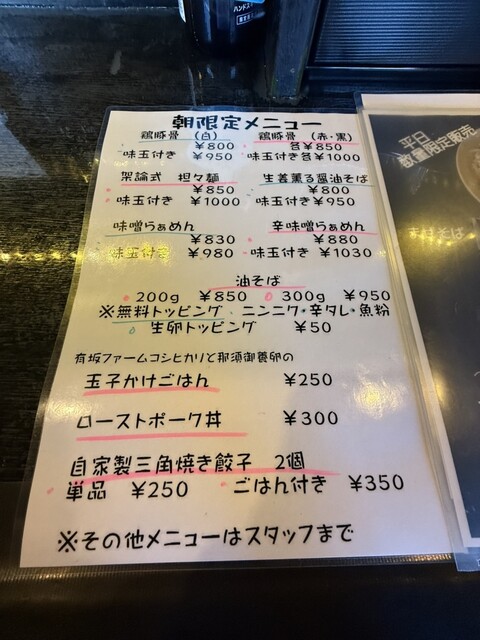 朝限定メニュー
鶏豚骨 (白) 鶏豚骨 (赤・黒)
¥800 各¥850
味玉付き ¥950 味玉付き各¥1000
架論式 担々麺 生姜薫る醤油そば
¥850 ¥800
味玉付き ¥1000 味玉付き¥950
味噌らぁめん 辛味噌らぁめん
¥830 ¥880
味玉付き ¥980 味玉付き ¥1030
油そば
200g ¥850 300g ¥950
※無料トッピング ニンニク・辛タレ・魚粉
生卵トッピング ¥50
有坂ファームコシヒカリと那須御養卵の
玉子かけごはん ¥250
ローストポーク丼 ¥300
自家製三角焼き餃子 2個
単品 ¥250 ごはん付き ¥350
※その他メニューはスタッフまで
平日
数量限定販売